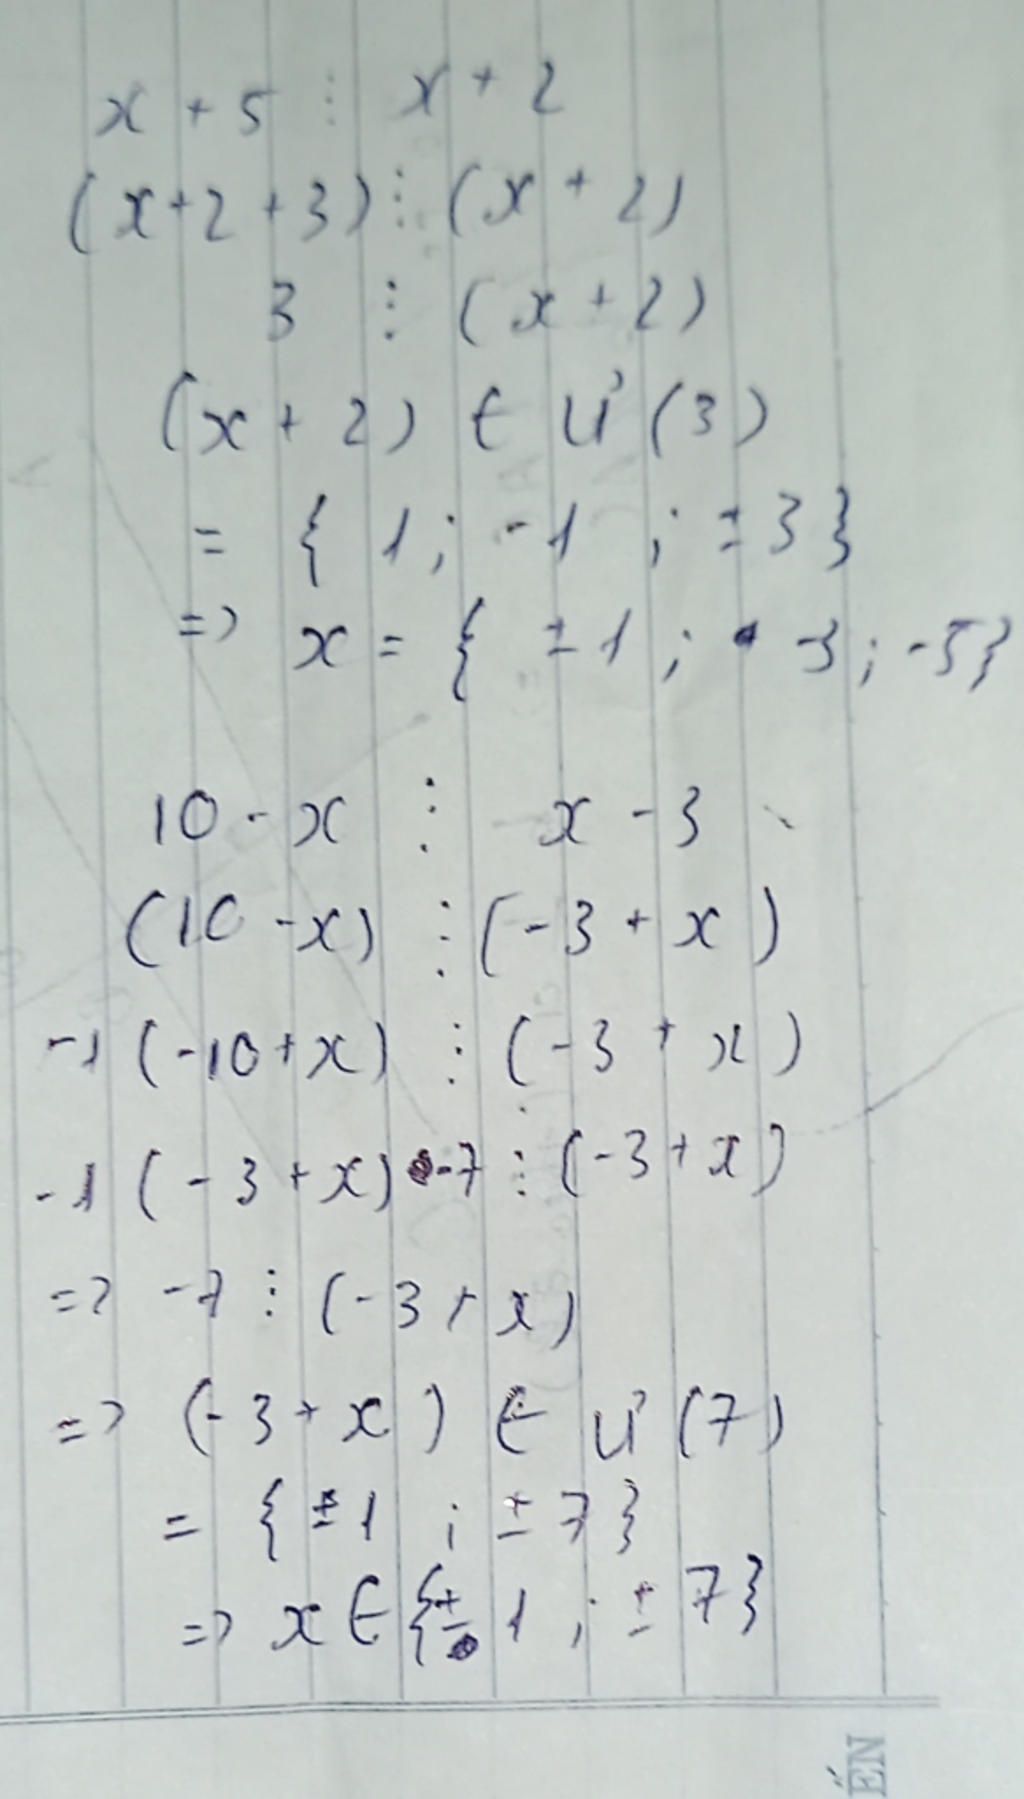 x + 5 ⋮ x + 2
(x+2 +3) ⋮ (x + 2)
3 ⋮ (x + 2)
(x + 2) ∈ Ư (3)
= { 1 ; -1 ; ±3 }
=> x = { ±1 ; -3 ; -5 }
10 - x ⋮ x - 3
(10 - x) ⋮ (-3 + x)
-1 (-10 + x) ⋮ (-3 + x)
-1 (-3 + x) -7 ⋮ (-3 + x)
=> -7 ⋮ (-3 + x)
=> (-3 + x) ∈ Ư (7)
= { ±1 ; ±7 }
=> x ∈ { ±1 ; ±7 }
ẾN